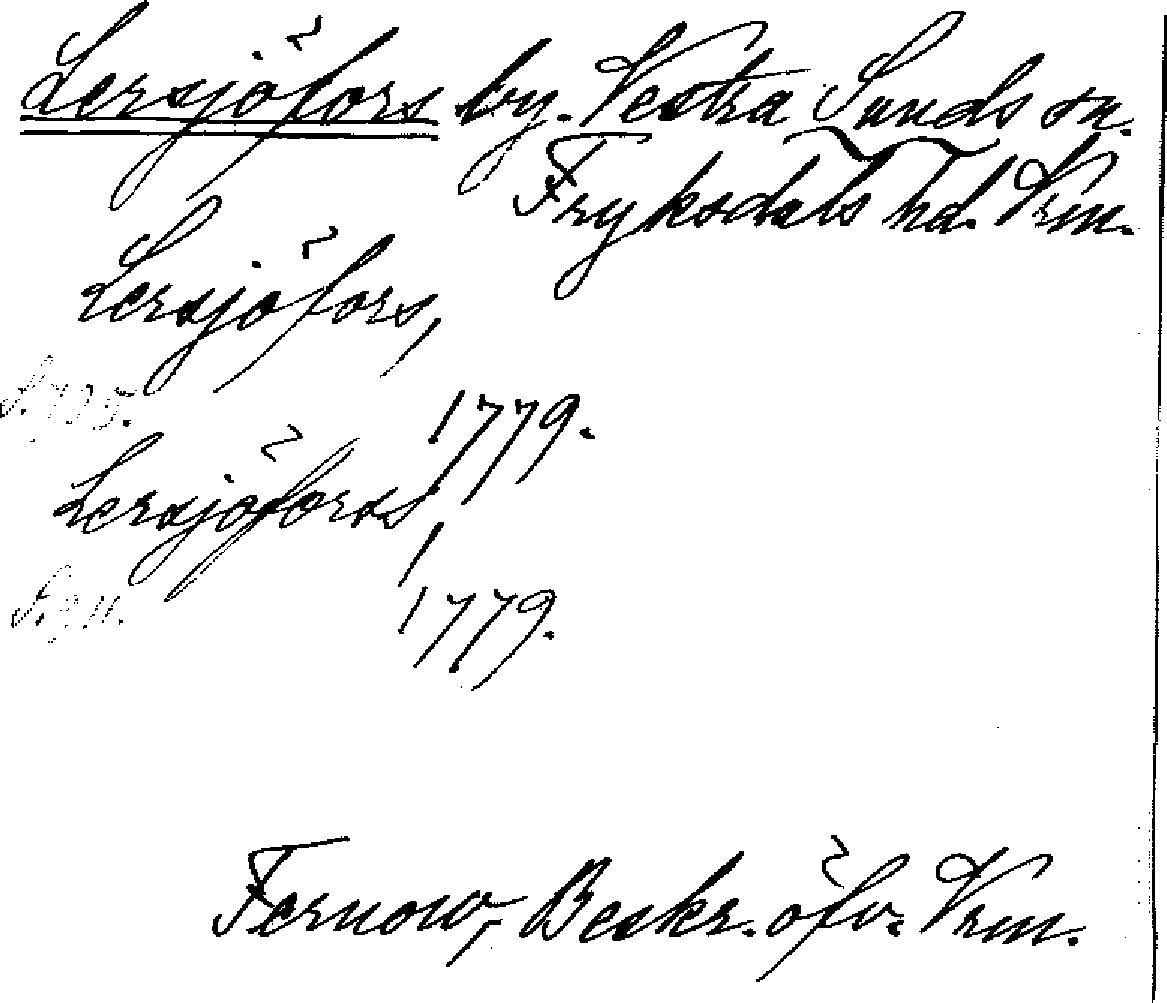 Lersjöfors by. Vestra Sunds sn.
Fryksdals hd. Vrm.
Lersjöfors,
1779.
Lersjöforss,
1779.
Fernow, Beskr. öfv. Vrm.